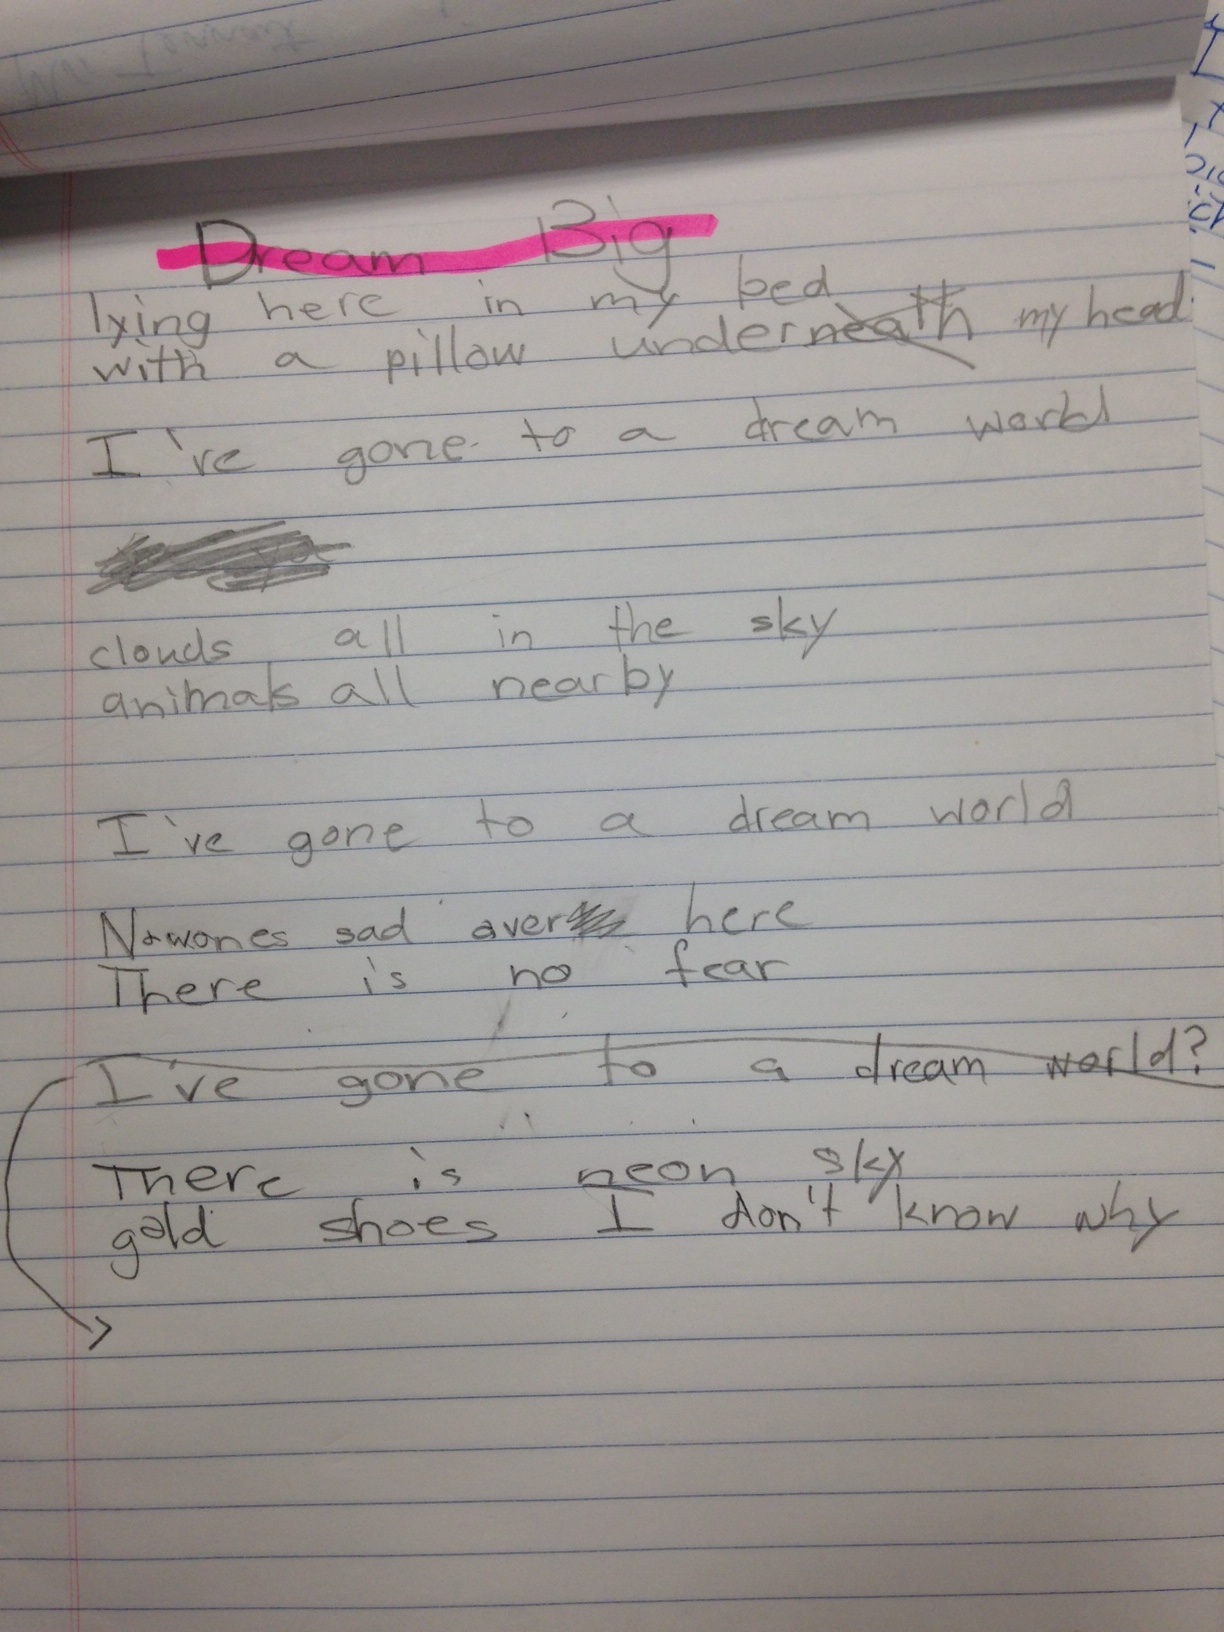 Dream Big
lying here in my bed
with a pillow underneath my head
I've gone to a dream world
clouds all in the sky
animals all nearby
I've gone to a dream world
Nowones sad over here
There is no fear
I've gone to a dream world?
There is neon sky
gold shoes I don't know why